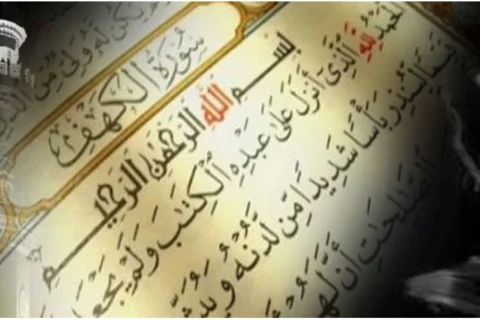 لَّهُ وَلِيٌّ مِّنَ
سُورَةُ الكَهْفِ
بِسْمِ اللَّهِ الرَّحْمَٰنِ الرَّحِيمِ
الْحَمْدُ لِلَّهِ الَّذِي أَنْزَلَ عَلَىٰ عَبْدِهِ الْكِتَٰبَ وَلَمْ يَجْعَل
لِيُنذِرَ بَأْسًا شَدِيدًا مِّن لَّدُنْهُ وَيُبَشِّ
الصَّالِحَاتِ أَنَّ لَهُمْ